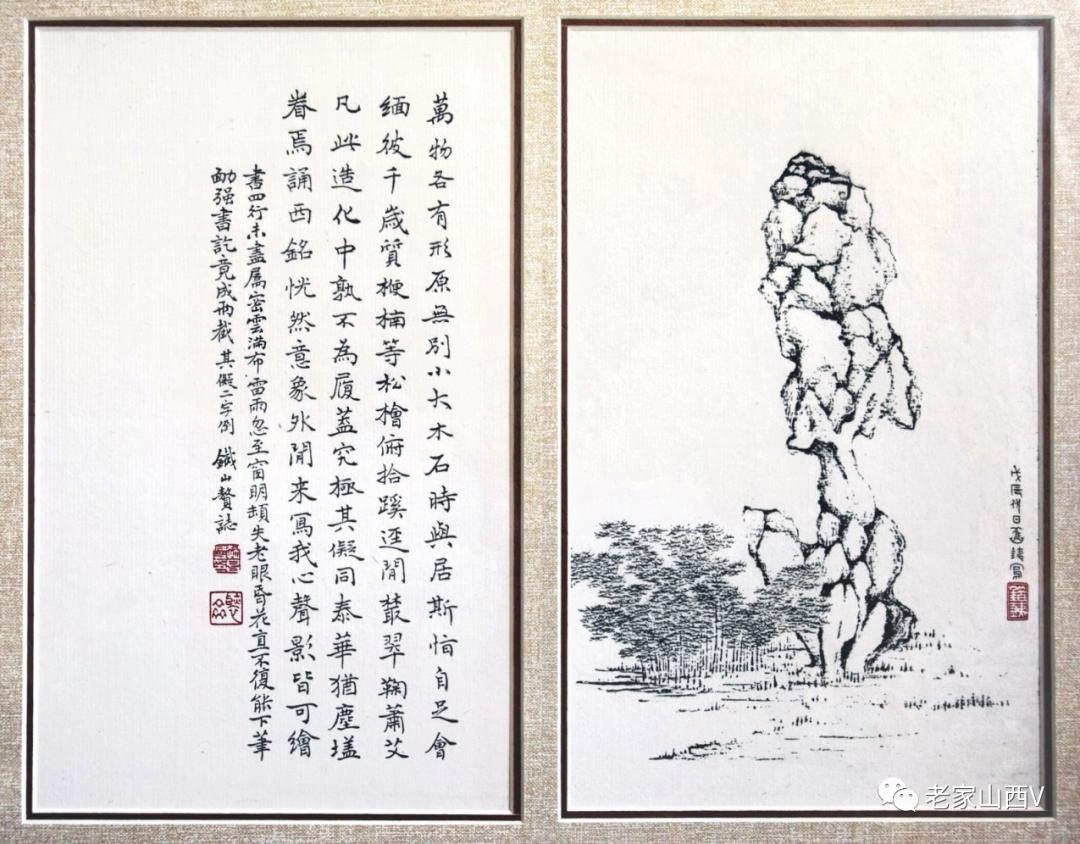 萬物各有形原無別小大木石時與居斯怡自足會
緬彼千歲質梗楠等松檜俯拾蹊逕間叢翠鞠蕭艾
凡此造化中孰不為履蓋究極其儗同泰華猶塵壒
眷焉誦西銘恍然意象外閒来寫我心聲影皆可繪
書四行未盡屬密雲滿布雷雨忽至窗明頓失老眼昏花直不復能下筆
勔强書訖竟成兩截其儗二字倒 鐵山贅誌
戊辰 日 寫
老家山西V